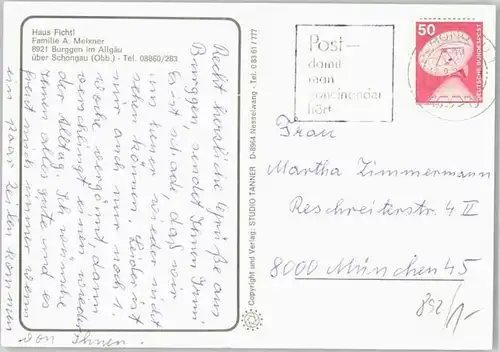 Haus Fichtl
Familie A. Meixner
8921 Burggen im Allgäu
über Schongau (Obb.) - Tel. 08860/283
Recht herzliche Grüße aus
Burggen, sendet Ihnen Irmi
Es ist schade, daß wir
uns heuer wieder nicht
sehen können. Leider ist
mir auch nur noch 1.
Woche vergönnt, dann
verschlingt einen wieder
der Alltag. Ich wünsche
Ihnen alles gute und es
freut mich immer wenn
ein paar Zeilen kommen
von Ihnen.
Copyright und Verlag: STUDIO TANNER D-8964 Nesselwang · Tel. 0 83 61 / 777
Post –
damit
man
voneinander
hört
50
DEUTSCHE BUNDESPOST
Frau
Martha Zimmermann
Reschreiterstr. 4 II
8000 München 45
892/